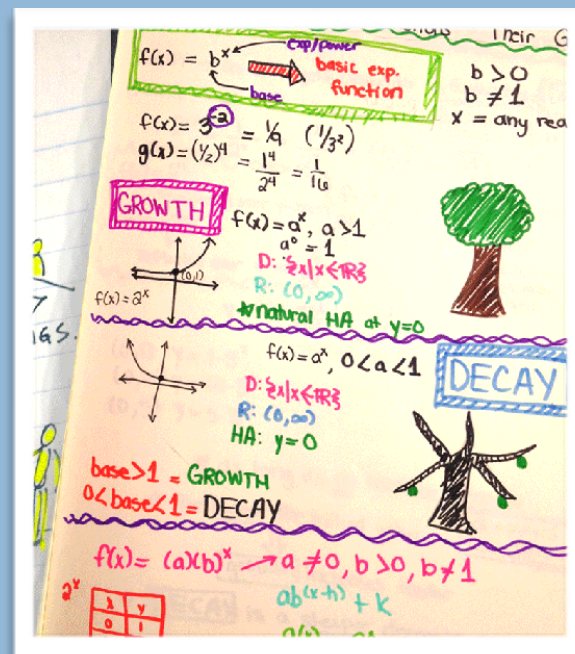 Their G
exp/power
f(x) = b^x
basic exp.
function
base
b > 0
b ≠ 1
x = any rea
f(x) = 3^-2 = 1/9 (1/3²)
g(x) = (1/2)^4 = 1^4/2^4 = 1/16
GROWTH
f(x) = a^x, a>1
a^0 = 1
D: {x|x∈ℝ}
R: (0,∞)
*natural HA at y=0
(0,1)
f(x) = 2^x
GS.
f(x) = a^x, 0<a<1
DECAY
D: {x|x∈ℝ}
R: (0,∞)
HA: y=0
base>1 = GROWTH
0<base<1 = DECAY
f(x) = (a)(b)^x → a≠0, b>0, b≠1
2^x
x y
0 1
ab^(x-h) + k